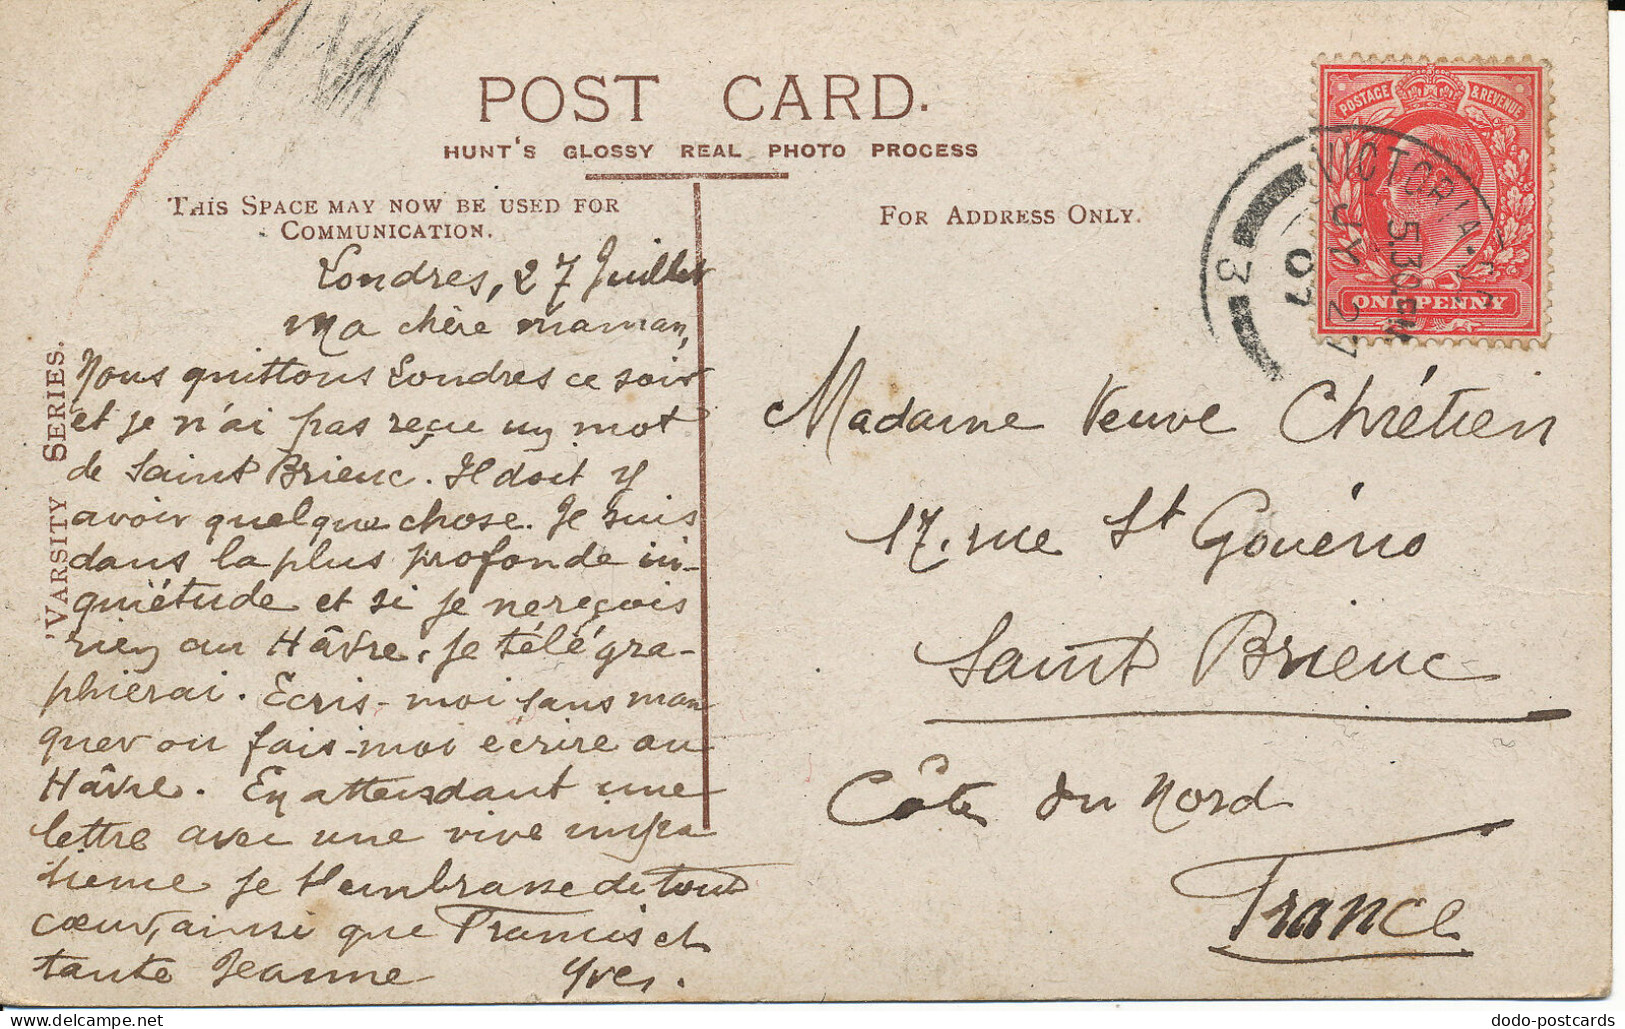 POST CARD.
HUNT'S GLOSSY REAL PHOTO PROCESS
THIS SPACE MAY NOW BE USED FOR
COMMUNICATION.
FOR ADDRESS ONLY.
'VARSITY SERIES.
Londres, 27 Juillet
Ma chère maman,
Nous quittons Londres ce soir
et je n'ai pas reçu un mot
de Saint Brieuc. Il doit y
avoir quelque chose. Je suis
dans la plus profonde in-
quiétude et si je ne reçois
rien au Hâvre, je télégra-
phierai. Ecris-moi sans man
quer ou fais-moi écrire au
Hâvre. En attendant une
lettre avec une vive impa
tience je t'embrasse de tout
cœur, ainsi que Francis et
tante Jeanne Yves.
POSTAGE & REVENUE
ONE PENNY
VICTORIA
5.30 PM
JY 27
07
3
Madame Veuve Chrétien
17, rue St Gouéno
Saint Brieuc
Côte du Nord
France
dodo-postcards